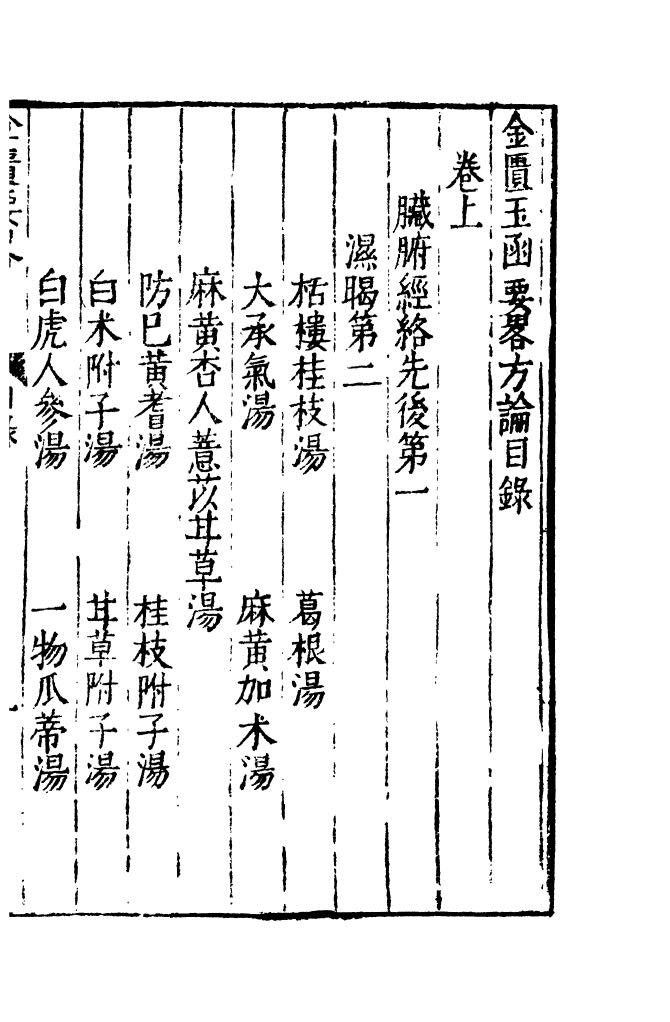 金匱玉函要畧方論目錄
卷上
臟腑經絡先後第一
濕暍第二
栝樓桂枝湯　葛根湯
大承氣湯　麻黃加术湯
麻黃杏人薏苡甘草湯
防已黃耆湯　桂枝附子湯
白术附子湯　甘草附子湯
白虎人參湯　一物瓜蒂湯